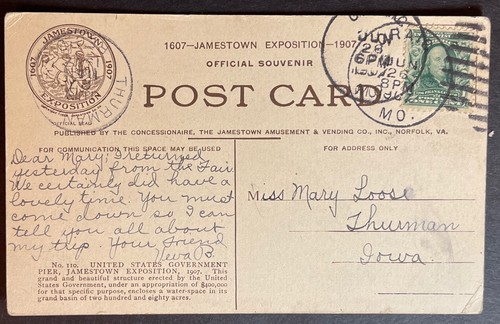 1607—JAMESTOWN EXPOSITION—1907
OFFICIAL SOUVENIR
POST CARD
JAMESTOWN
1607
1907
EXPOSITION
OFFICIAL SEAL
THURMAN
JUN
26
8PM
MO.
PUBLISHED BY THE CONCESSIONAIRE, THE JAMESTOWN AMUSEMENT & VENDING CO., INC., NORFOLK, VA.
FOR COMMUNICATION THIS SPACE MAY BE USED
FOR ADDRESS ONLY
Dear Mary; I returned
yesterday from the Fair.
We certainly did have a
lovely time. You must
come down so I can
tell you all about
my trip. Your friend
Neva B.
Miss Mary Loose
Thurman
Iowa.
No. 110. UNITED STATES GOVERNMENT
PIER, JAMESTOWN EXPOSITION, 1907. This
grand and beautiful structure erected by the United
States Government, under an appropriation of $400,000
for that specific purpose, encloses a water-space in its
grand basin of two hundred and eighty acres.